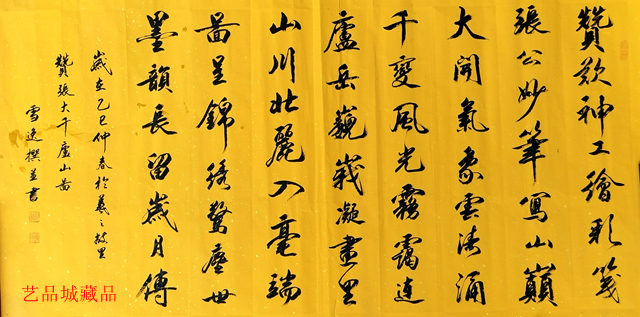 贊歎神工繪彩箋
張公妙筆寫山巔
大開氣象雲濤涌
千變風光霧靄連
廬岳巍峩凝畫里
山川壯麗入毫端
啚呈錦綉驚塵世
墨韻長留歲月傳
歲在乙巳仲春於羲之故里
贊張大千廬山啚
雪逸撰並書
艺品城藏品